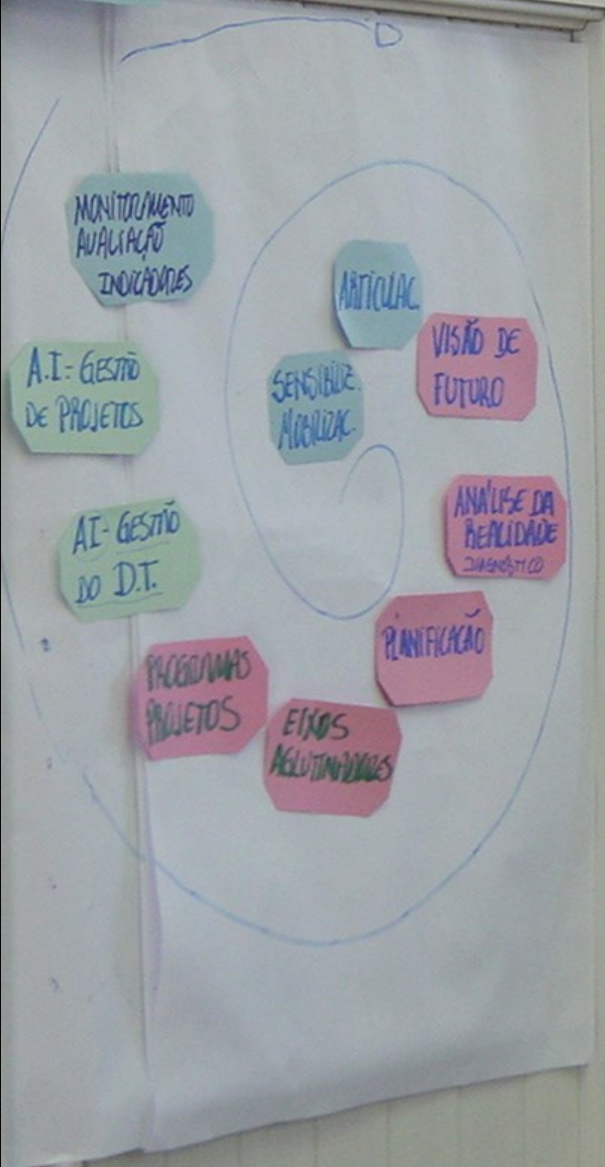 MONITORAMENTO
AVALIAÇÃO
INDICADORES
ARTICULAC.
VISÃO DE
FUTURO
A.I= GESTÃO
DE PROJETOS
SENSIBILIZ.
MOBILIZAC.
ANÁLISE DA
REALIDADE
DIAGNÓSTICO
AI- GESTÃO
DO D.T.
PLANIFICAÇÃO
PROGRAMAS
PROJETOS
EIXOS
AGLUTINADORES